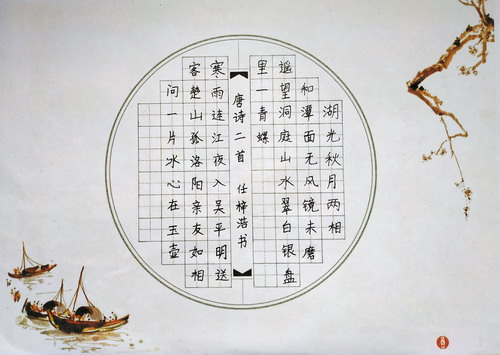 湖光秋月两相
和潭面无风镜未磨
遥望洞庭山水翠白银盘
里一青螺
唐诗二首 任梓浩书
寒雨连江夜入吴平明送
客楚山孤洛阳亲友如相
问一片冰心在玉壶